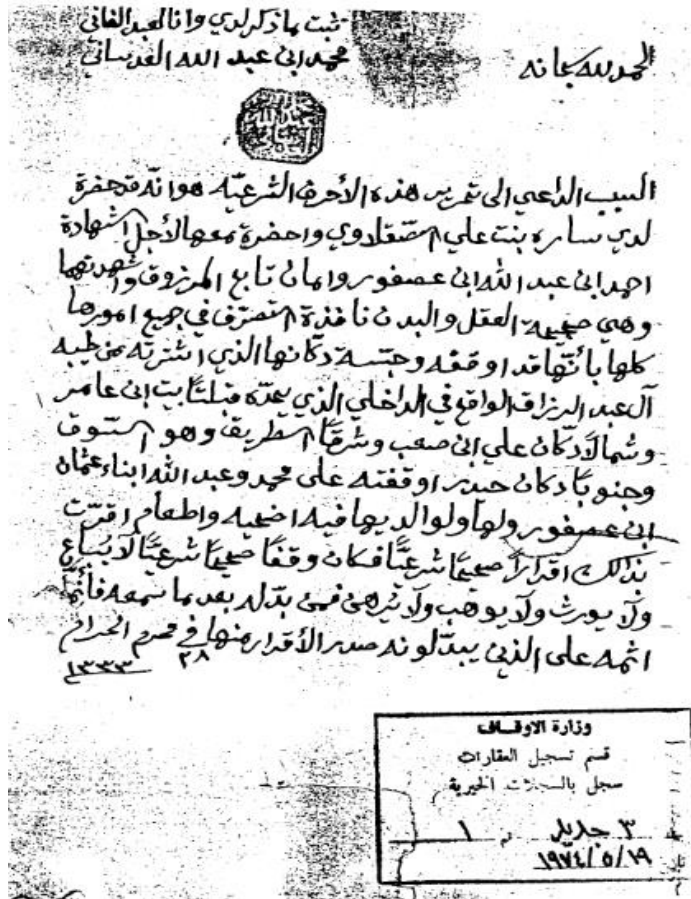 ثبت ما ذكر لدي وانا العبد الفاني
محمد ابن عبد الله العدساني
الحمد لله سبحانه
السبب الداعي الى تحرير هذه الأحرف الشرعيّه هو انّه قد حضرة
لدي ساره بنت علي الصّقلاوي واحضرة معها لأجل الشهادة
احمد ابن عبد الله ابن عصفور وامان تابع المرزوق واشهدتهما
وهي صحيحة العقل والبدن نافذة التصرّف في جميع امورها
كلها بأنّها قد اوقفه وحبّسة دكّانها الذي اشترته من طيبه
آل عبد الرزاق الواقع في الداخلي الذي يحدّه قبلتاً بيت ابن عامر
وشمالاً دكان علي ابن صعب وشرقاً الطريق وهو السّوق
وجنوباً دكان حيدر اوقفته على محمد وعبد الله ابناء عثمان
ابن عصفور ولها ولوالديها فيه اضحيه واطعام اقرّت
بذالك اقراراً صحيحاً شرعيّاً فكان وقفاً صحيحاً شرعيّاً لا يُباع
ولا يورث ولا يوهب ولا يُرهن فمن بدّله بعد ما سمعه فأنّما
اثمه على الذين يبدّلونه صدر الأقرار منها في محرم الحرام
٢٨ ١٣٣٣
وزارة الاوقاف
قسم تسجيل العقارات
سجل بالسجلات الخيرية
٣ جديد م ١
١٩٧٤/٥/١٩